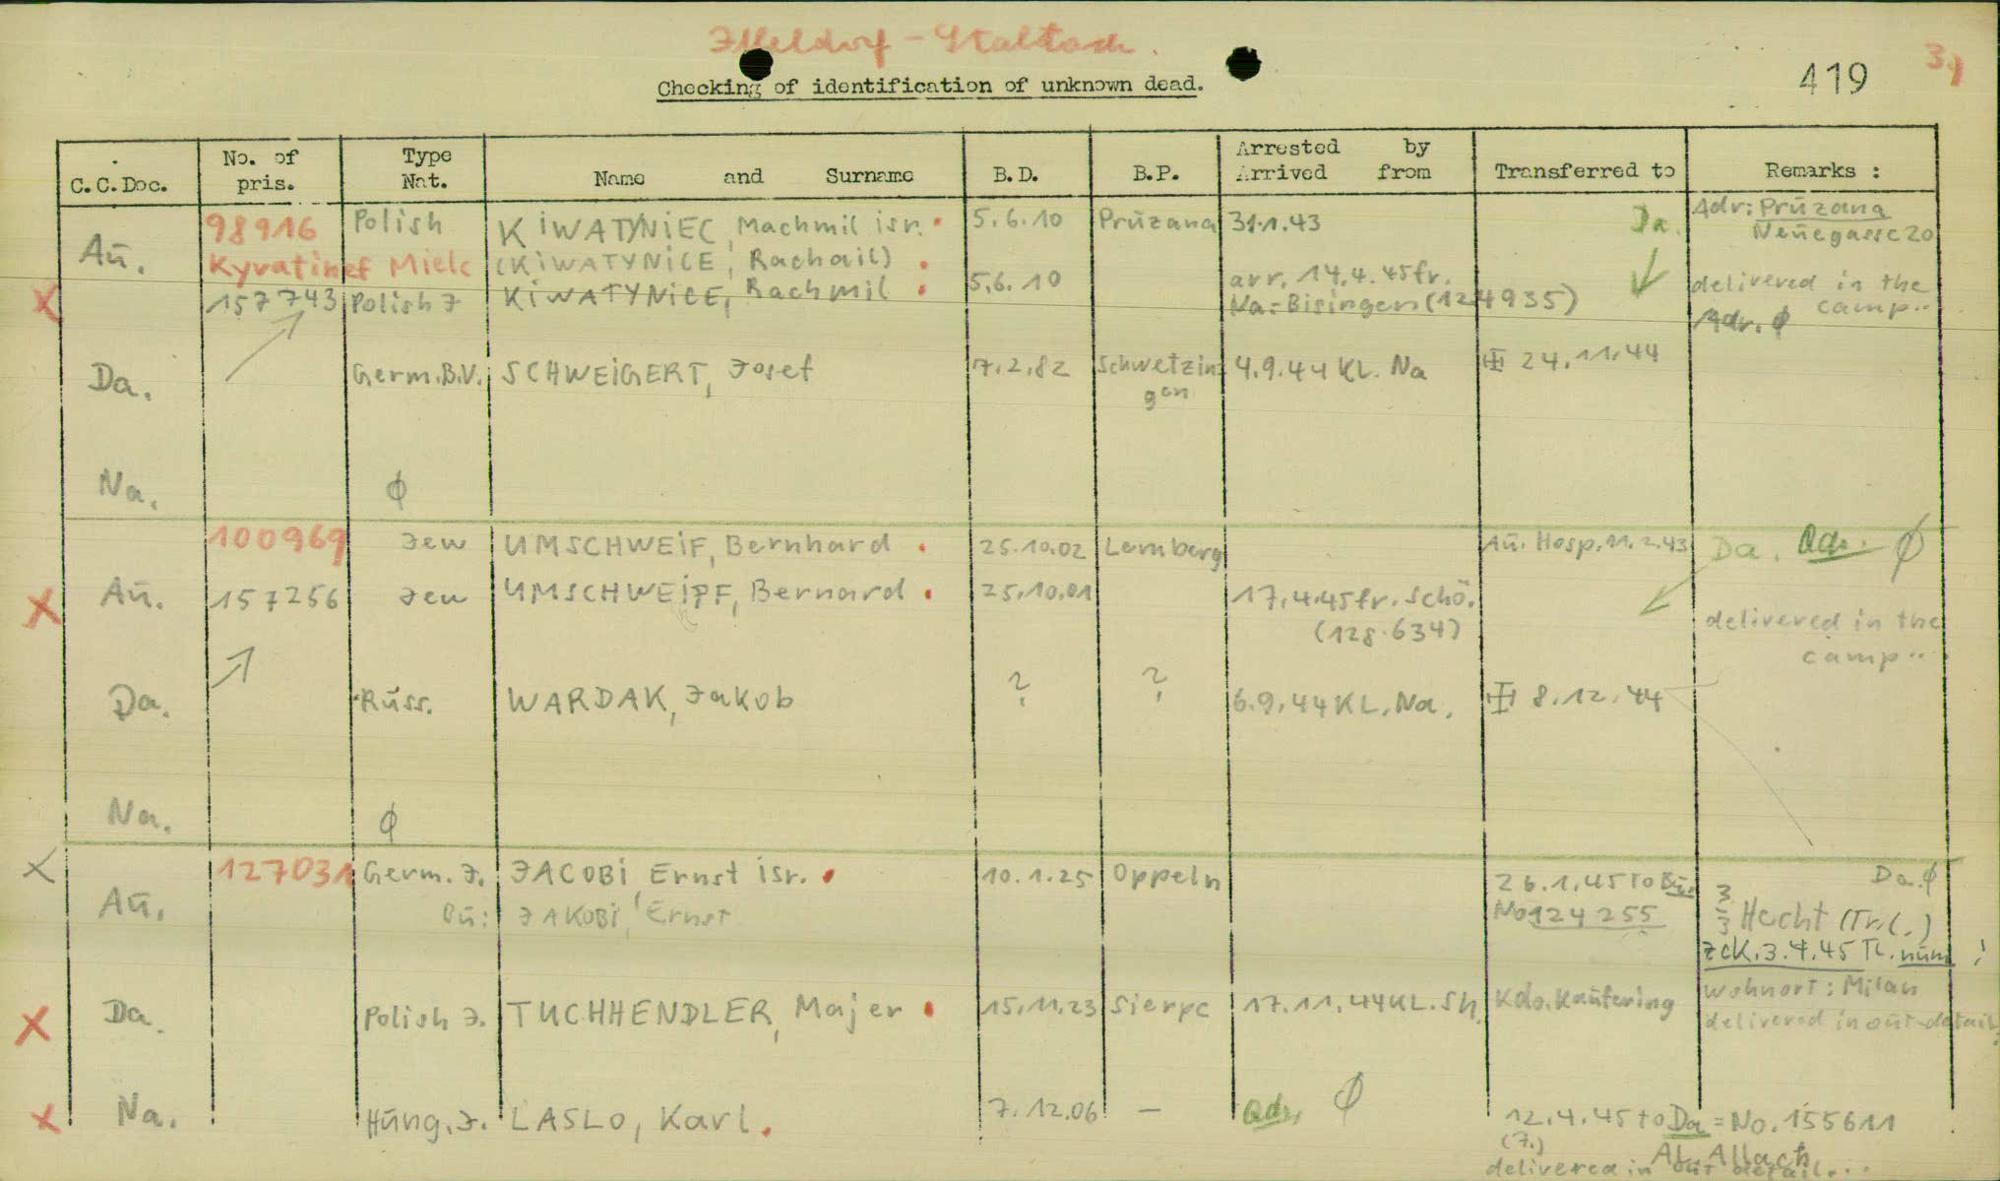 Iffeldorf - Staltach.
Checking of identification of unknown dead.
419
39
C.C.Doc.
No. of pris.
Type Nat.
Name and Surname
B.D.
B.P.
Arrested by
Arrived from
Transferred to
Remarks :
Aŭ. 98916 Polish KIWATYNIEC, Machmil isr. 5.6.10 Prŭzana 31.1.43 Da. Adr: Prŭzana
Neŭegasse 20
Kyvatinef Miele (KIWATYNICE, Rachail)
X 157743 Polish J KIWATYNICE, Rachmil 5.6.10 arr. 14.4.45 fr. delivered in the
Na.-Bisingen (124935) camp..
Adr. ϕ
Da. Germ.B.V. SCHWEIGERT, Josef 7.2.82 Schwetzin 4.9.44 KL. Na 24.11.44
gen
Na. ϕ
100969 Jew UMSCHWEIF, Bernhard 25.10.02 Lemberg Aŭ. Hosp. 11.2.43 Da. Adr. ϕ
X Aŭ. 157256 Jew UMSCHWEIPF, Bernard 25.10.01 17.4.45 fr. Schö.
(128.634) delivered in the
camp..
Da. Rŭss. WARDAK, Jakob ? ? 6.9.44 KL. Na. 8.12.44
Na. ϕ
X 127031 Germ. J. JACOBI, Ernst isr. 10.1.25 Oppeln 26.1.45 to Bŭ. Da. ϕ
Aŭ. Bŭ: JAKOBI, Ernst No 124255 Hecht (Tr.L.)
zck. 3.4.45 TL. nŭm !
Wohnort: Milan
X Da. Polish J. TUCHHENDLER, Majer 15.11.23 Sierpc 17.11.44 KL. Sh. Kdo. Kaŭfering
delivered in oŭt-detail.
X Na. Hŭng. J. LASLO, Karl. 7.12.06 — Adr. ϕ 12.4.45 to Da = No. 155611
(7.) AL. Allach
delivered in oŭt detail...